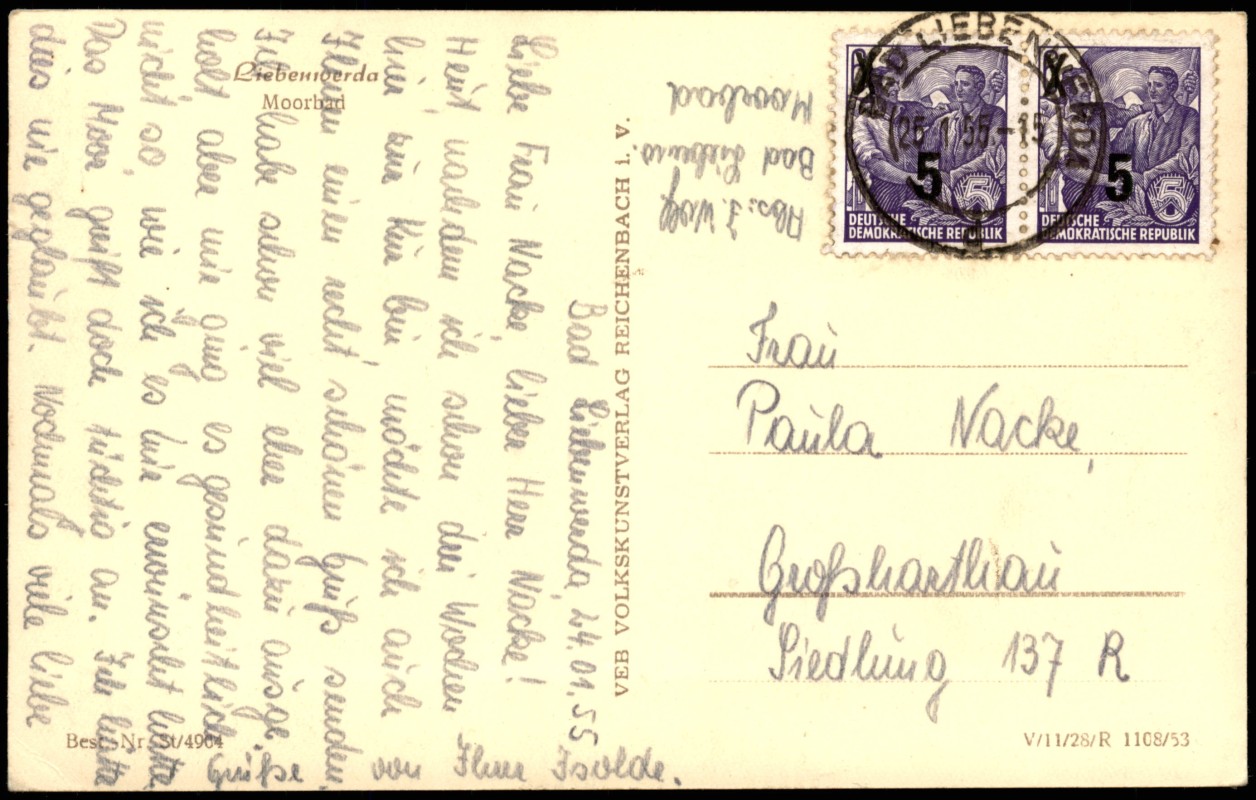 Liebenwerda
Moorbad
Bad Liebenwerda, 24.01.55
Liebe Frau Nacke, lieber Herr Nacke!
Heut, nachdem ich schon drei Wochen
hier zur Kur bin, möchte ich auch
Ihnen einen recht schönen Gruß senden.
Ich habe schon viel eher daran ausge
holt aber mir ging es gesundheitlich
nicht so wie ich es mir erwünscht hatte
Das Moor greift doch tüchtig an. Ich hätte
dies nie geglaubt. Nochmals viele liebe
Grüße von Ihrer Isolde.
Best.-Nr. St/4964
VEB VOLKSKUNSTVERLAG REICHENBACH i. V.
Abs: I. Wolf
Bad Liebenw.
Moorbad
BAD LIEBENWERDA
25.1.55.-15
5
5
DEUTSCHE
DEMOKRATISCHE REPUBLIK
5
5
DEUTSCHE
DEMOKRATISCHE REPUBLIK
Frau
Paula Nacke,
Großharthau
Siedlung 137 R
V/11/28/R 1108/53